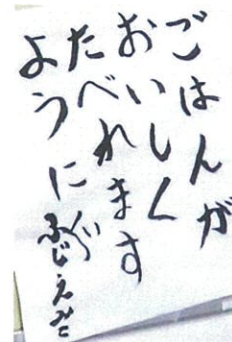 ごはんが
おいしく
たべれます
ように
ふじえみこ